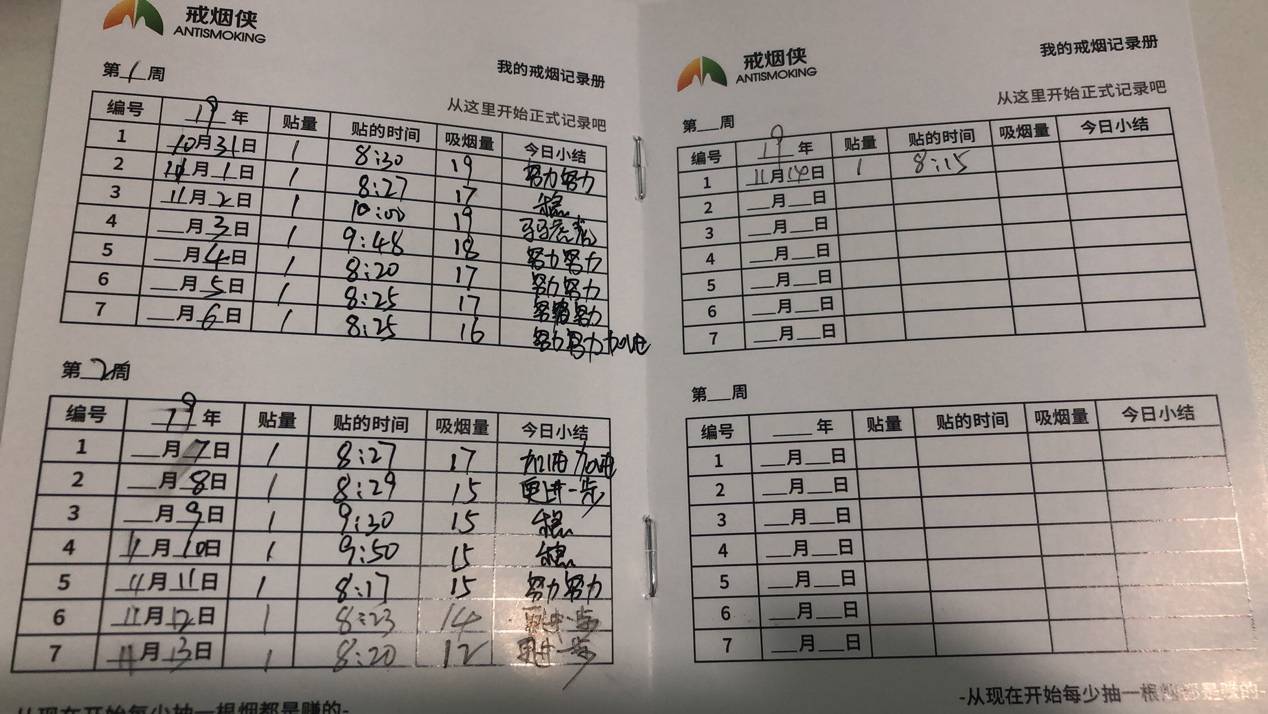 戒烟侠
ANTISMOKING
第1周
我的戒烟记录册
从这里开始正式记录吧
编号 19年 贴量 贴的时间 吸烟量 今日小结
1 10月31日 1 8:30 19 努力努力
2 11月1日 1 8:27 17 稳
3 11月2日 1 10:00 19 马马虎虎
4 __月3日 1 9:48 18 努力努力
5 __月4日 1 8:20 17 努力努力
6 __月5日 1 8:25 17 努力
7 __月6日 1 8:25 16 努力努力加油
第2周
编号 19年 贴量 贴的时间 吸烟量 今日小结
1 __月7日 1 8:27 17 加油加油
2 __月8日 1 8:29 15 更进一步
3 __月9日 1 9:30 15 稳
4 11月10日 1 9:50 15 稳
5 11月11日 1 8:17 15 努力努力
6 11月12日 1 8:23 14 更进一步
7 11月13日 1 8:20 12 更进一步
-从现在开始每少抽一根烟都是赚的-
戒烟侠
ANTISMOKING
我的戒烟记录册
从这里开始正式记录吧
第__周
编号 19年 贴量 贴的时间 吸烟量 今日小结
1 11月14日 1 8:15
2 __月__日
3 __月__日
4 __月__日
5 __月__日
6 __月__日
7 __月__日
第__周
编号 ____年 贴量 贴的时间 吸烟量 今日小结
1 __月__日
2 __月__日
3 __月__日
4 __月__日
5 __月__日
6 __月__日
7 __月__日
-从现在开始每少抽一根烟都是赚的-